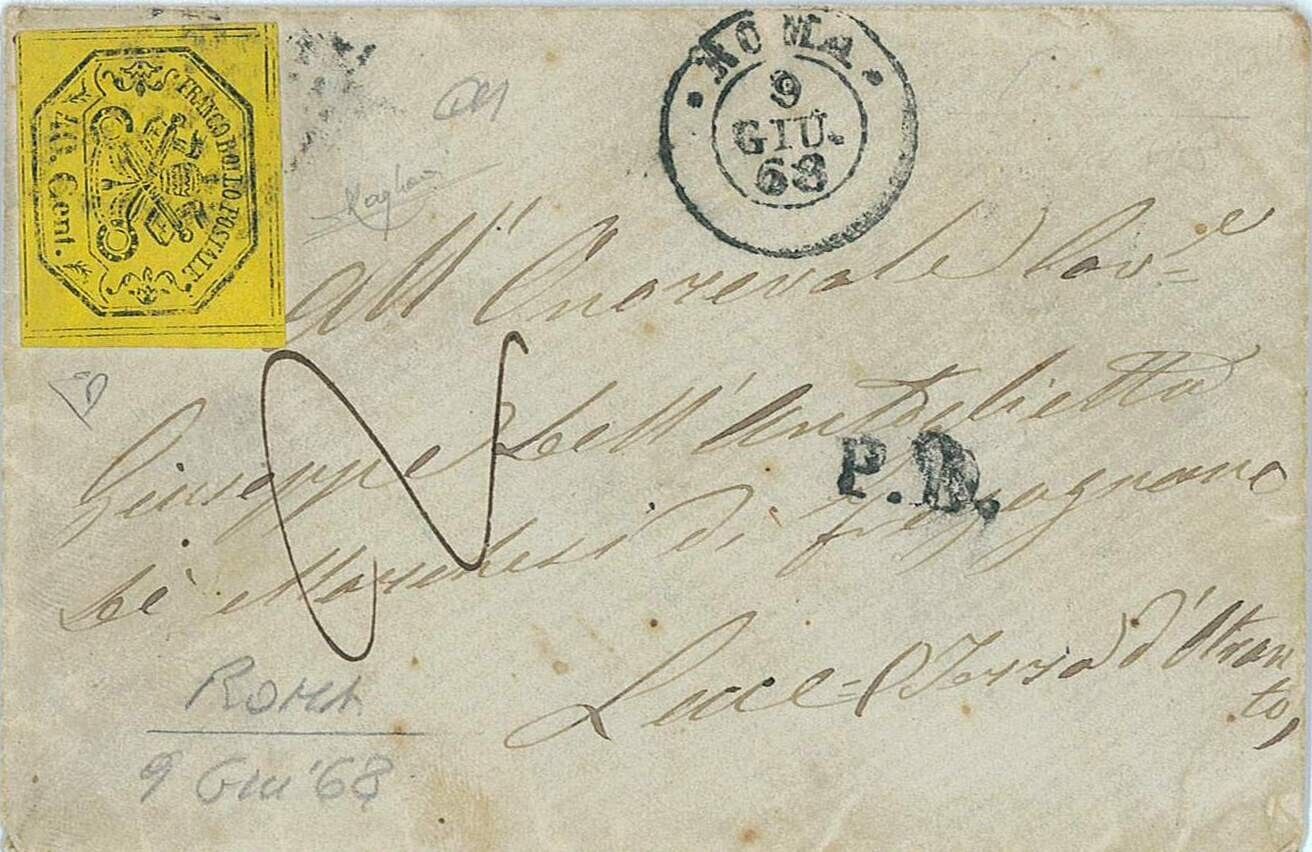 FRANCO BOLLO POSTALE
40. Cent.
ROMA
9
GIU.
68
All' Onorevole Cav.e
Giuseppe Dell' Antoglietta
de' Marchesi di Fragagnano
P.D.
Lecce = (Terra d'Otran
to)
Roma
9 Giu '68